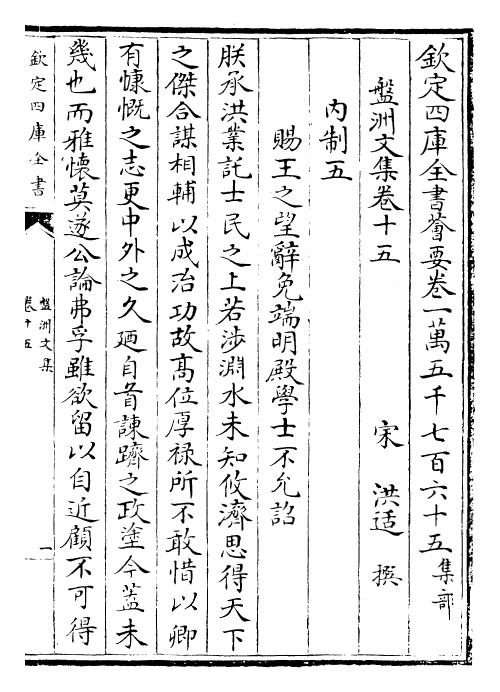 欽定四庫全書薈要卷一萬五千七百六十五集部
盤洲文集卷十五
宋 洪适 撰
内制五
賜王之望辭免端明殿學士不允詔
朕承洪業託士民之上若涉淵水未知攸濟思得天下
之傑合謀相輔以成治功故髙位厚禄所不敢惜以卿
有慷慨之志更中外之久廼自首諫躋之政塗今蓋未
幾也而雅懷莫遂公論弗孚雖欲留以自近顧不可得
欽定四庫全書
盤洲文集
卷十五
一